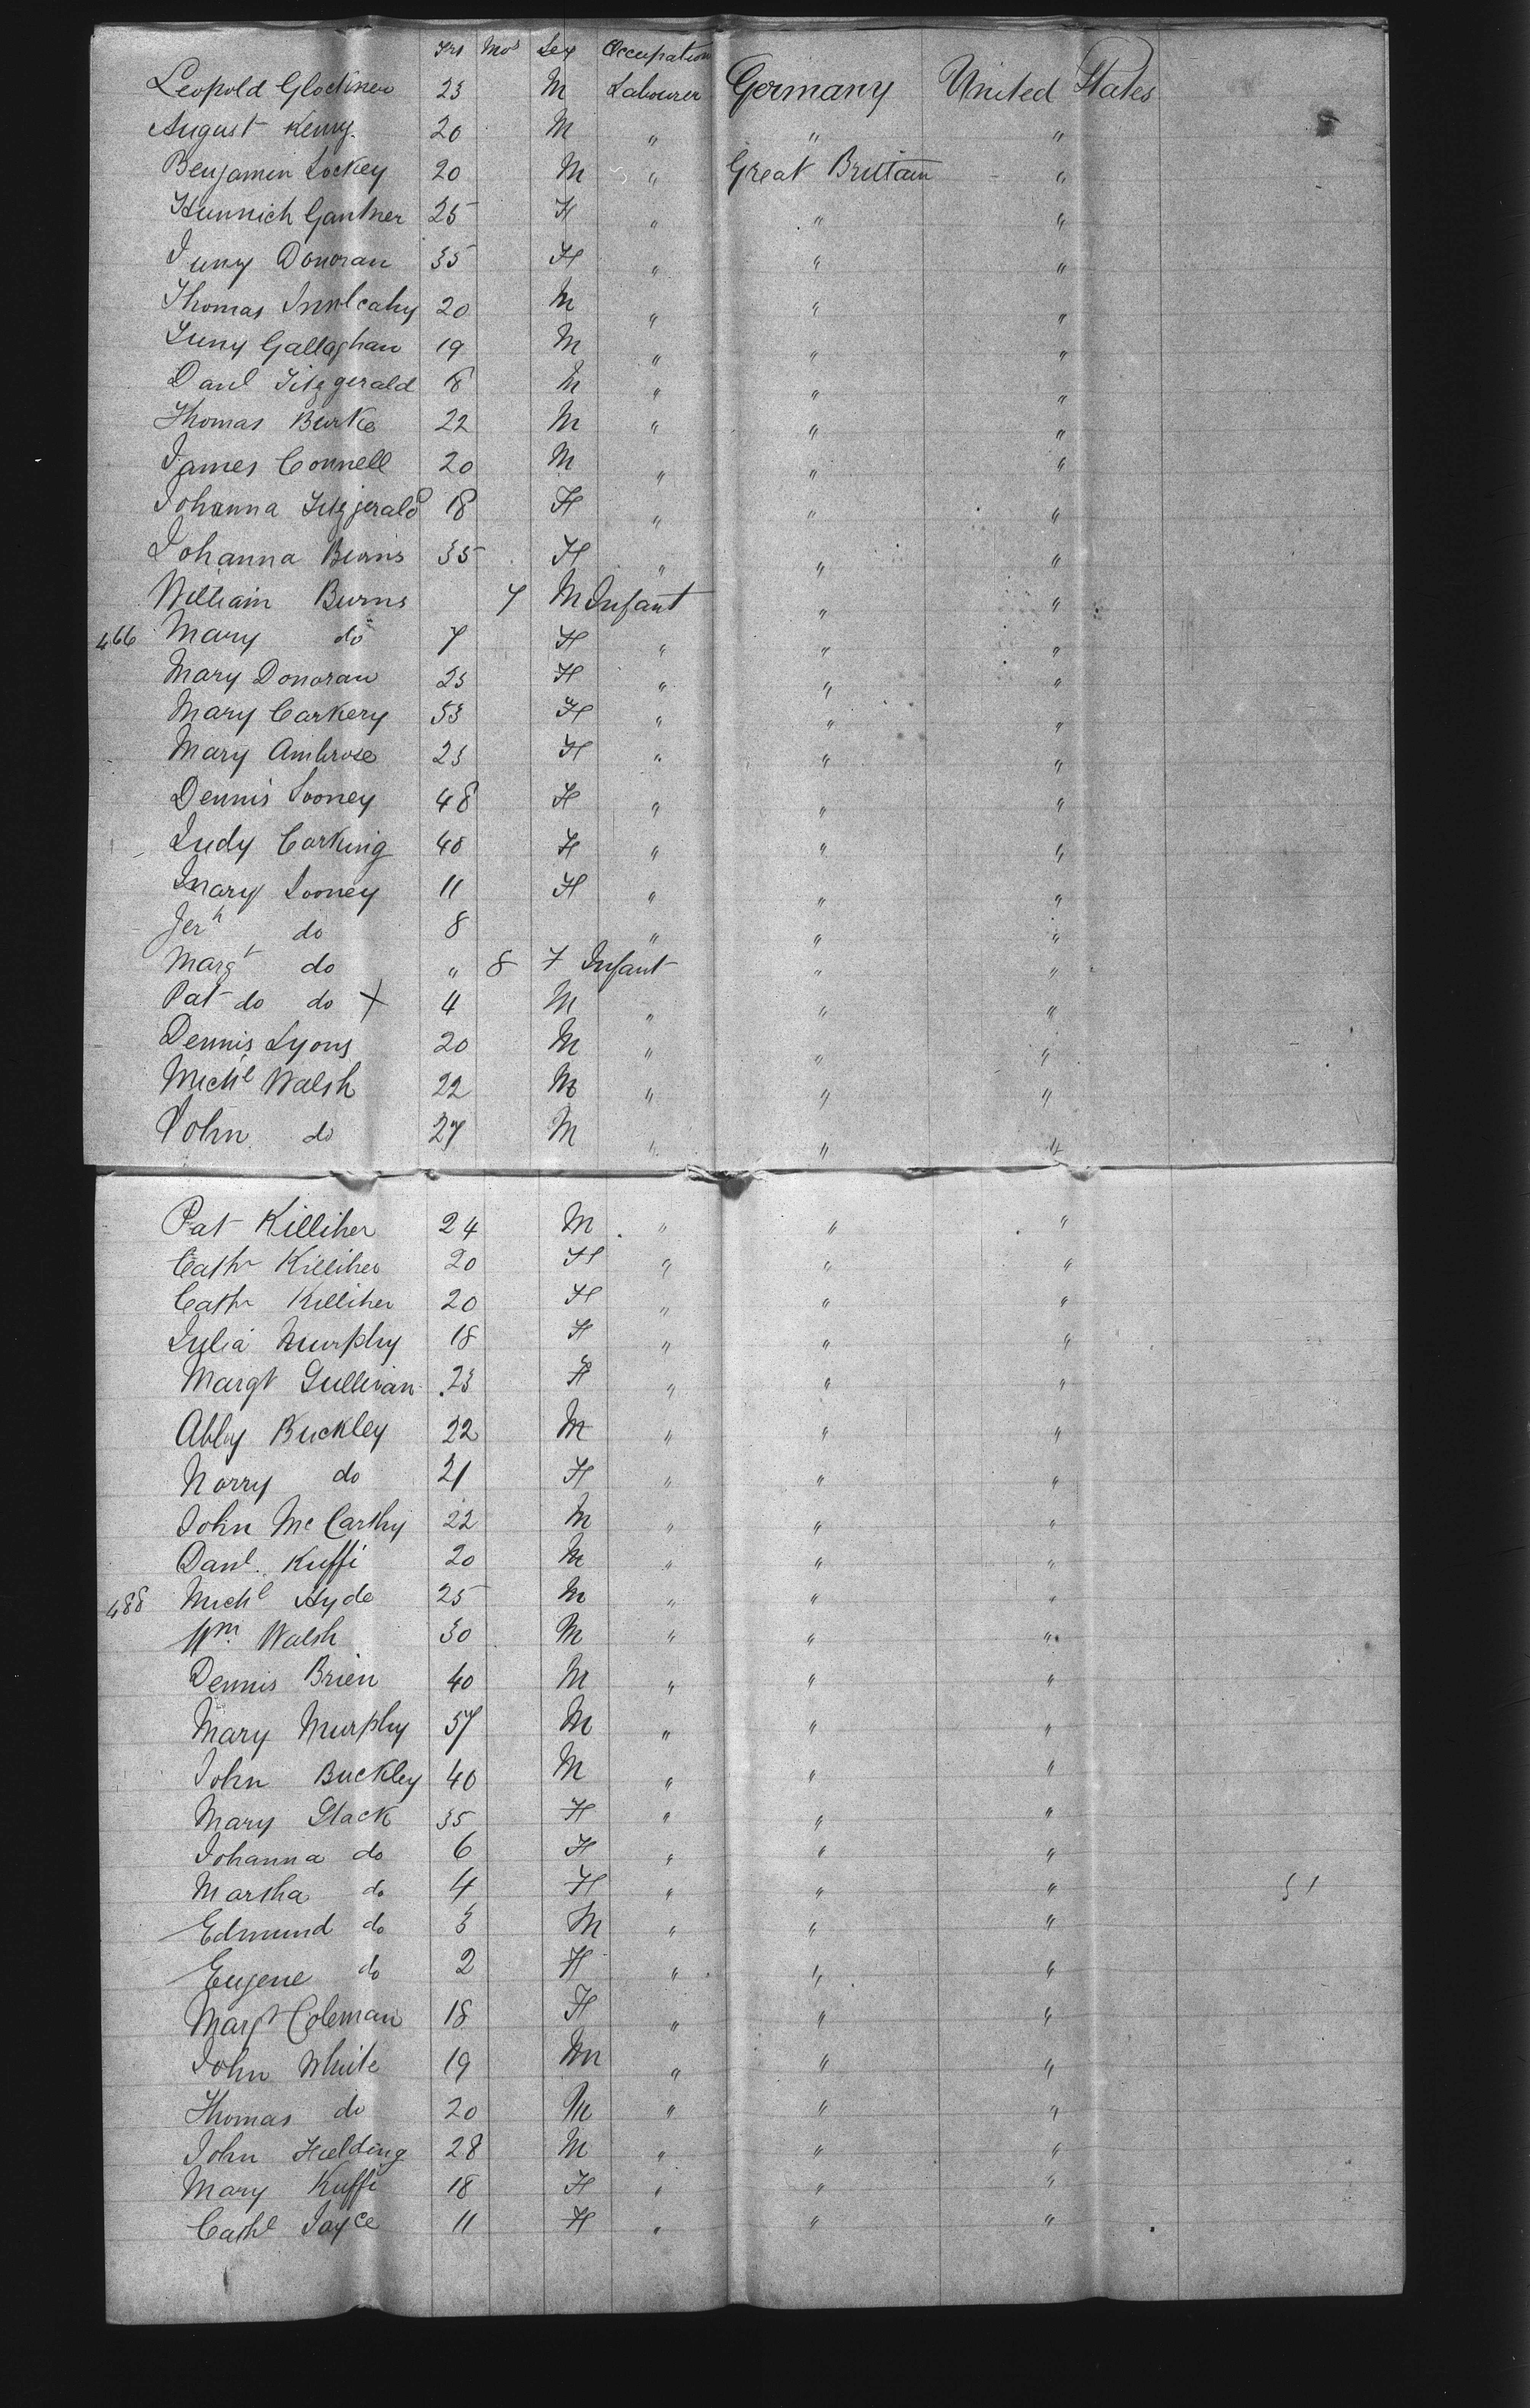 Yrs Mos Sex Occupation
Leopold Glockner 23 M Labourer Germany United States
August Kemy. 20 M " " "
Benjamin Lockey 20 M " Great Brittain "
Hennrich Gantner 25 F " " "
Juny Donovan 35 F " " "
Thomas Mulcahy 20 M " " "
Juny Gallaghan 19 M " " "
Danl Fitzgerald 18 M " " "
Thomas Burke 22 M " " "
James Connell 20 M " " "
Johanna Fitzgerald 18 F " " "
Johanna Burns 35 F " " "
William Burns 7 M Infant " "
466 Mary do 7 F " " "
Mary Donovan 23 F " " "
Mary Carkery 53 F " " "
Mary Ambrose 23 F " " "
Dennis Looney 48 F " " "
Judy Carking 40 F " " "
Mary Looney 11 F " " "
Jerh do 8 " " "
Margt do " 8 F Infant " "
Pat do do + 4 M " " "
Dennis Lyons 20 M " " "
Michl Walsh 22 M " " "
John do 27 M " " "
Pat Killiher 24 M " " "
Cathr Killiher 20 F " " "
Cathr Killiher 20 F " " "
Julia Murphy 18 F " " "
Margt Sullivan 23 F " " "
Abby Buckley 22 M " " "
Norry do 21 F " " "
John McCarthy 22 M " " "
Danl. Kuffi 20 M " " "
488 Michl Hyde 25 M " " "
Wm Walsh 30 M " " "
Dennis Brien 40 M " " "
Mary Murphy 57 M " " "
John Buckley 40 M " " "
Mary Stack 35 F " " "
Johanna do 6 F " " "
Martha do 4 F " " " 51
Edmund do 3 M " " "
Eugene do 2 F " " "
Margt Coleman 18 F " " "
John White 19 M " " "
Thomas do 20 M " " "
John Fielding 28 M " " "
Mary Kuffi 18 F " " "
Cathl Joyce 11 F " " "